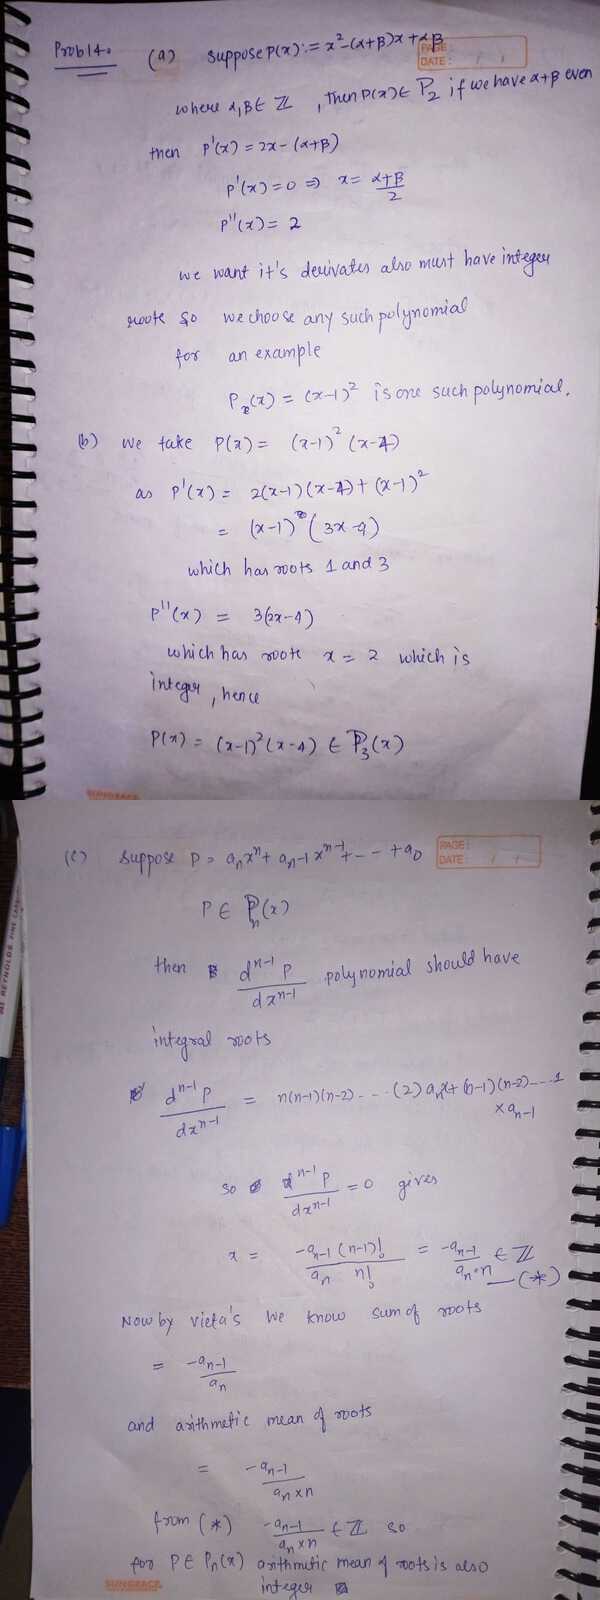 Prob 14. (a) suppose P(x) := x² - (α+β)x + αβ
PAGE:
DATE: / /
where α, β ∈ ℤ , then P(x) ∈ P₂ if we have α+β even
then P'(x) = 2x - (α+β)
P'(x) = 0 ⇒ x = (α+β)/2
P''(x) = 2
we want it's derivates also must have integer
roots so we choose any such polynomial
for an example
P₂(x) = (x-1)² is one such polynomial.
(b) we take P(x) = (x-1)² (x-4)
as P'(x) = 2(x-1)(x-4) + (x-1)²
= (x-1) (3x-9)
which has roots 1 and 3
P''(x) = 3(2x-4)
which has roots x = 2 which is
integer, hence
P(x) = (x-1)²(x-4) ∈ P₃(x)
SUNGRACE
(c) suppose P = aₙxⁿ + aₙ₋₁xⁿ⁻¹ + - - + a₀
PAGE:
DATE: / /
P ∈ Pₙ(x)
then dⁿ⁻¹P/dxⁿ⁻¹ polynomial should have
integral roots
dⁿ⁻¹P/dxⁿ⁻¹ = n(n-1)(n-2) - - - (2) aₙx + (n-1)(n-2) - - - 1
× aₙ₋₁
so dⁿ⁻¹P/dxⁿ⁻¹ = 0 gives
x = -aₙ₋₁ (n-1)!/aₙ n! = -aₙ₋₁/aₙ·n ∈ ℤ
—(*)
Now by vieta's we know sum of roots
= -aₙ₋₁/aₙ
and arithmetic mean of roots
= -aₙ₋₁/aₙ×n
from (*) -aₙ₋₁/aₙ×n ∈ ℤ so
for P ∈ Pₙ(x) arithmetic mean of roots is also
integer
SUNGRACE